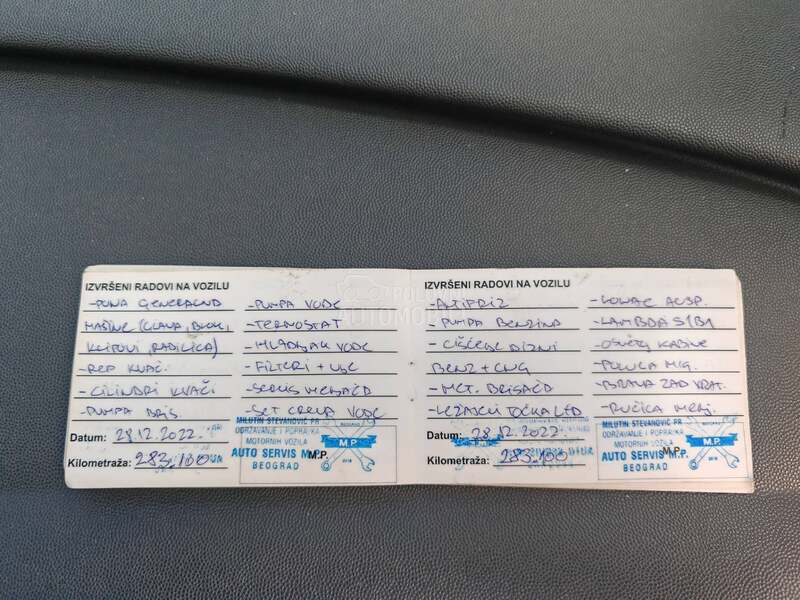 IZVRŠENI RADOVI NA VOZILU
-PUNA GENERALNO
MAŠINE (GLAVA, BLOK,
KLIPOVI, RADILICA)
-REP KVAČ.
-CILINDRI KVAČI
-PUMPA BRIS.
-PUMPA VODE
-TERMOSTAT
-HLADNJAK VODE
-FILTERI + ULJE
-SERVIS MENJAČA
-SET CREVA VODE
Datum: 28.12.2022.
Kilometraža: 283.100
MILUTIN STEVANOVIĆ PR
ODRŽAVANJE I POPRAVKA
MOTORNIH VOZILA
AUTO SERVIS M.P.
BEOGRAD
BEOGRAD
M.P.
M.P.
IZVRŠENI RADOVI NA VOZILU
-ANTIFRIZ
-PUMPA BENZINA
-ČIŠĆENJE DIZNI
BENZ + CNG
-MET. BRISAČA
-LEŽAJEVI TOČKA
-LONAC AUSP.
-LAMBDA S1/B1
KABINE
-POLUGA MIG.
-BRAVA ZAD VRAT.
-RUČICA MENJ.
Datum: 28.12.2022.
Kilometraža: 283.100
MILUTIN STEVANOVIĆ PR
ODRŽAVANJE I POPRAVKA
MOTORNIH VOZILA
AUTO SERVIS M.P.
BEOGRAD
BEOGRAD
M.P.
M.P.
POLOVNI
AUTOMOBILI